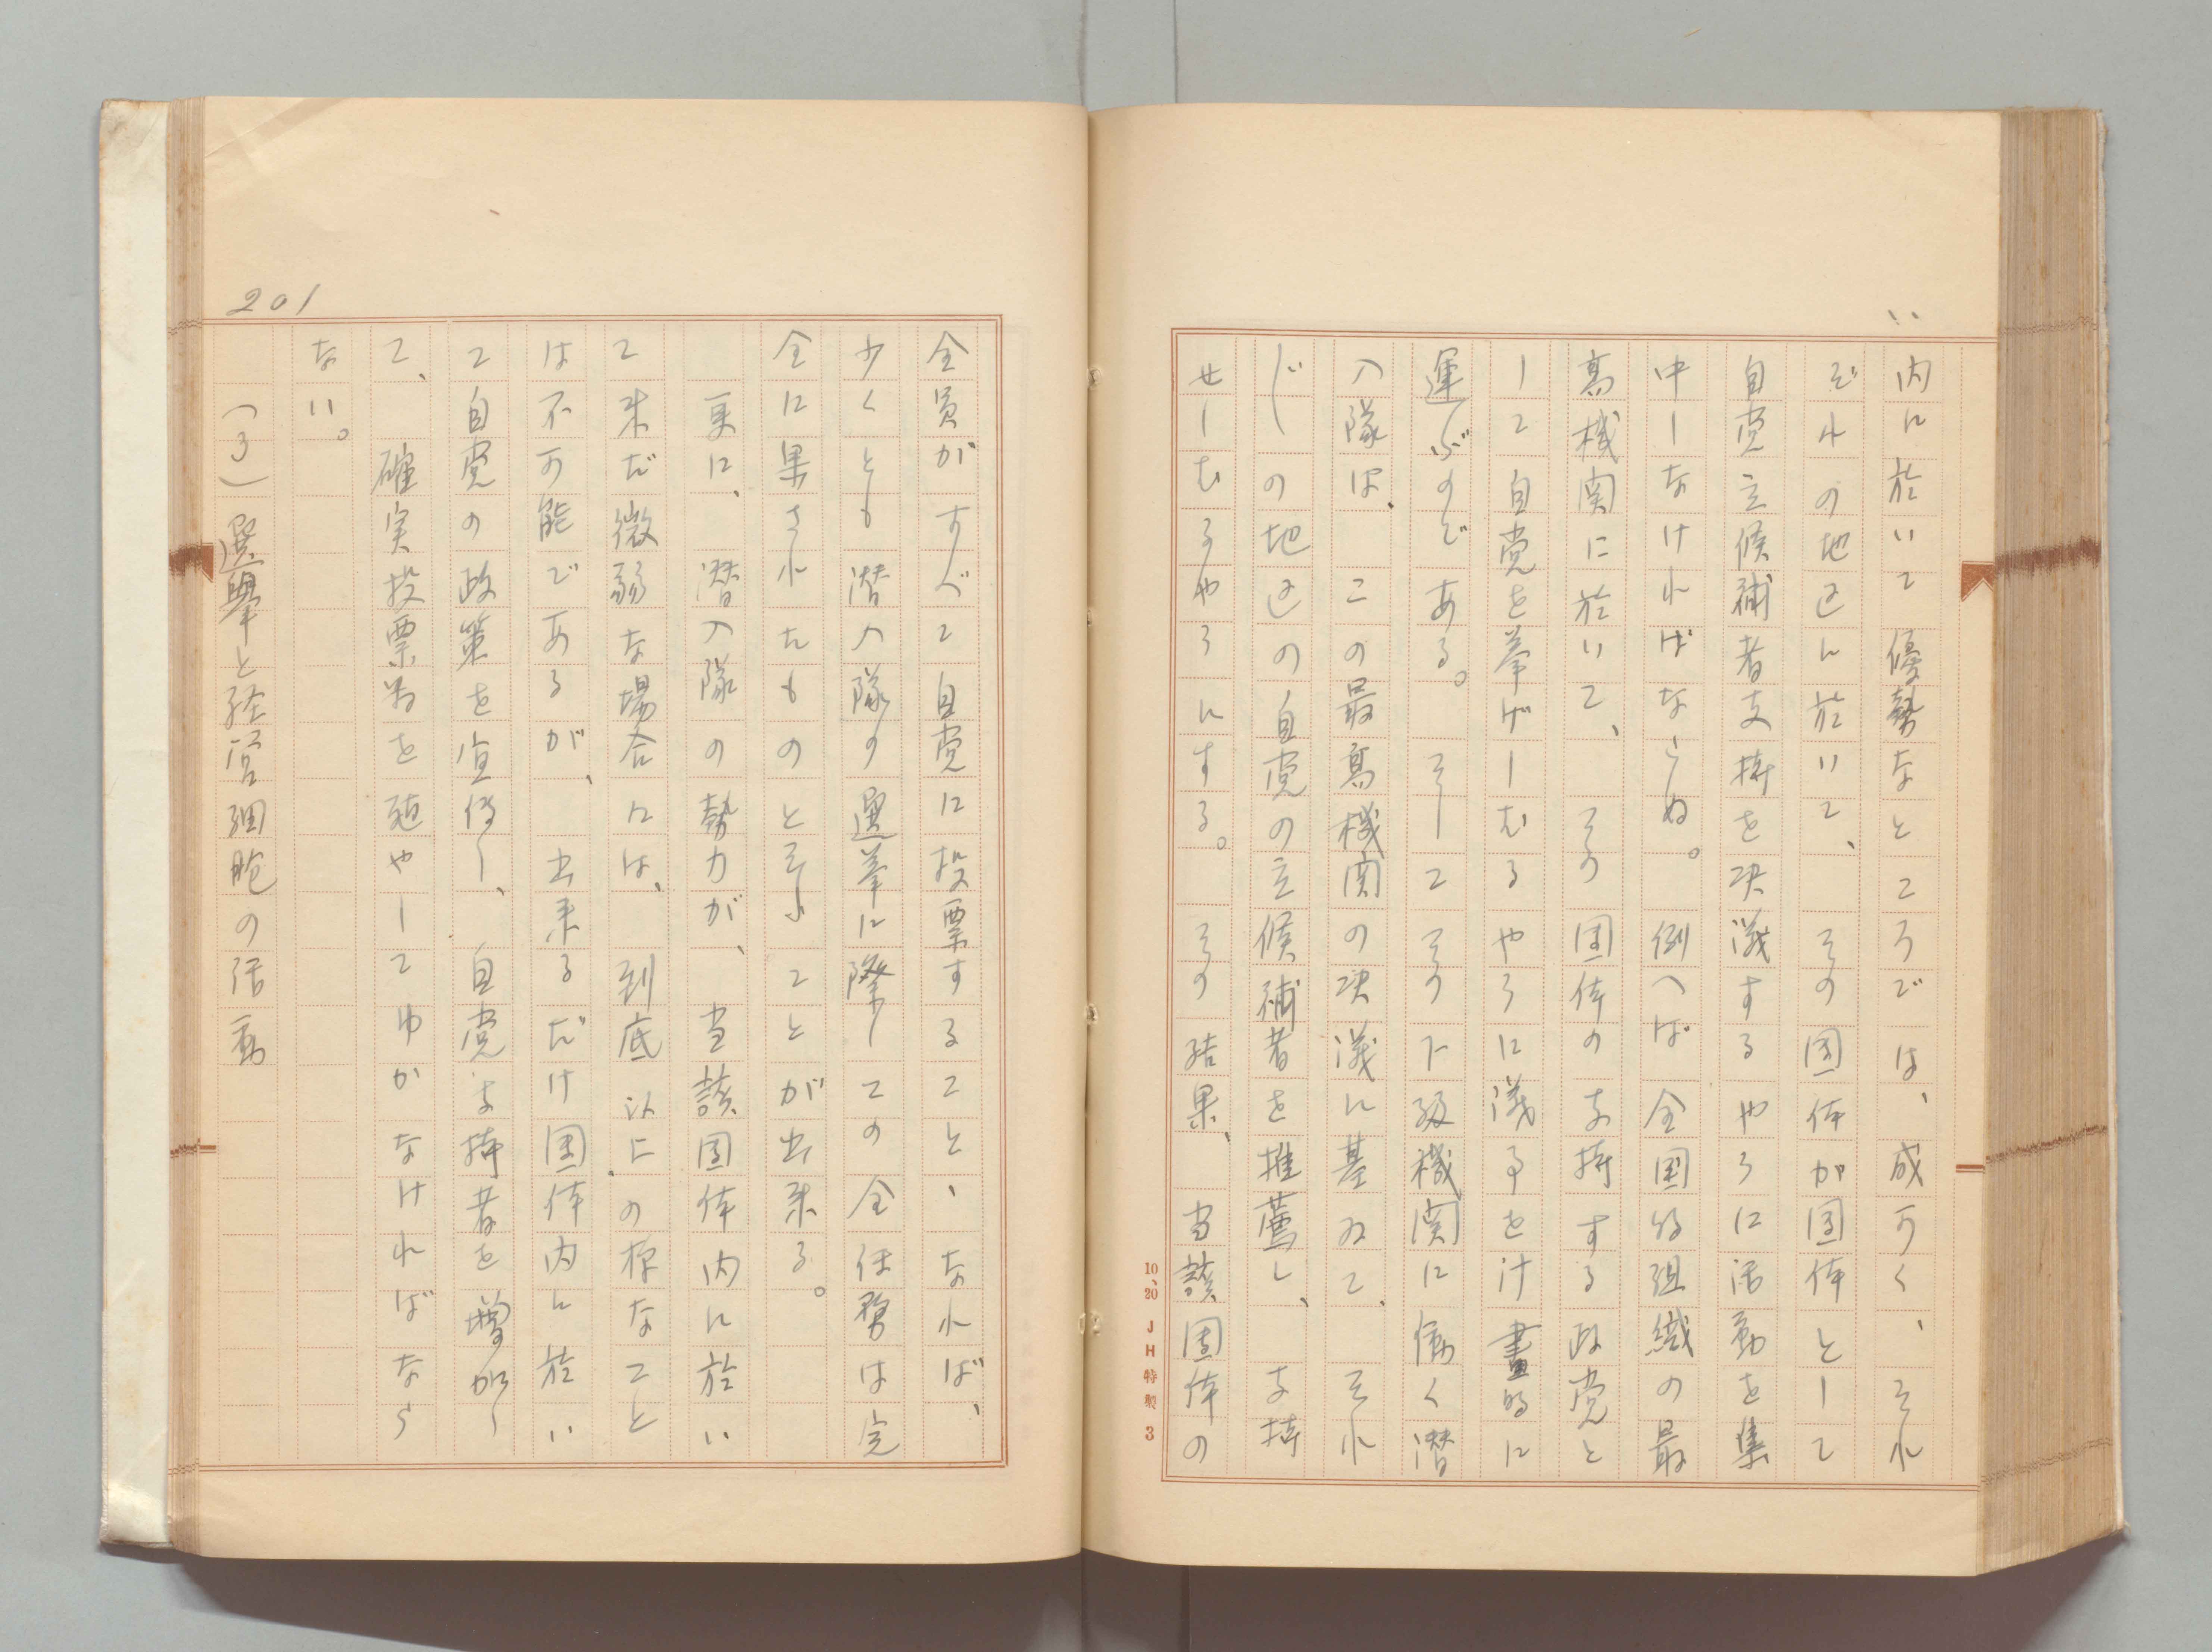 内に於いて優勢なところでは、成可く、それ
ぞれの地区に於いて、その団体が団体として
自党立候補者支持を決議するやうに活動を集
中しなければならぬ。例へば全国的組織の最
高機関に於いて、その団体の支持する政党と
して自党を挙げしむるやうに議事を計畫的に
運ぶのである。そしてその下級機関に働く潜
入隊は、この最高機関の決議に基ゐて、それ
〴〵の地区の自党の立候補者を推薦し、支持
せしむるやうにする。その結果、当該団体の
10、20 JH特製 3
全員がすべて自党に投票すること、なれば、
少くとも潜入隊の選挙に際しての全任務は完
全に果されたものと云ふことが出来る。
更に、潜入隊の勢力が、当該団体内に於い
て未だ微弱な場合には、到底以上の様なこと
は不可能であるが、出来るだけ団体内に於い
て自党の政策を宣伝し、自党支持者を増加し
て、確実投票数を殖やしてゆかなければなら
ない。
201
(3)選擧と経営細胞の活動